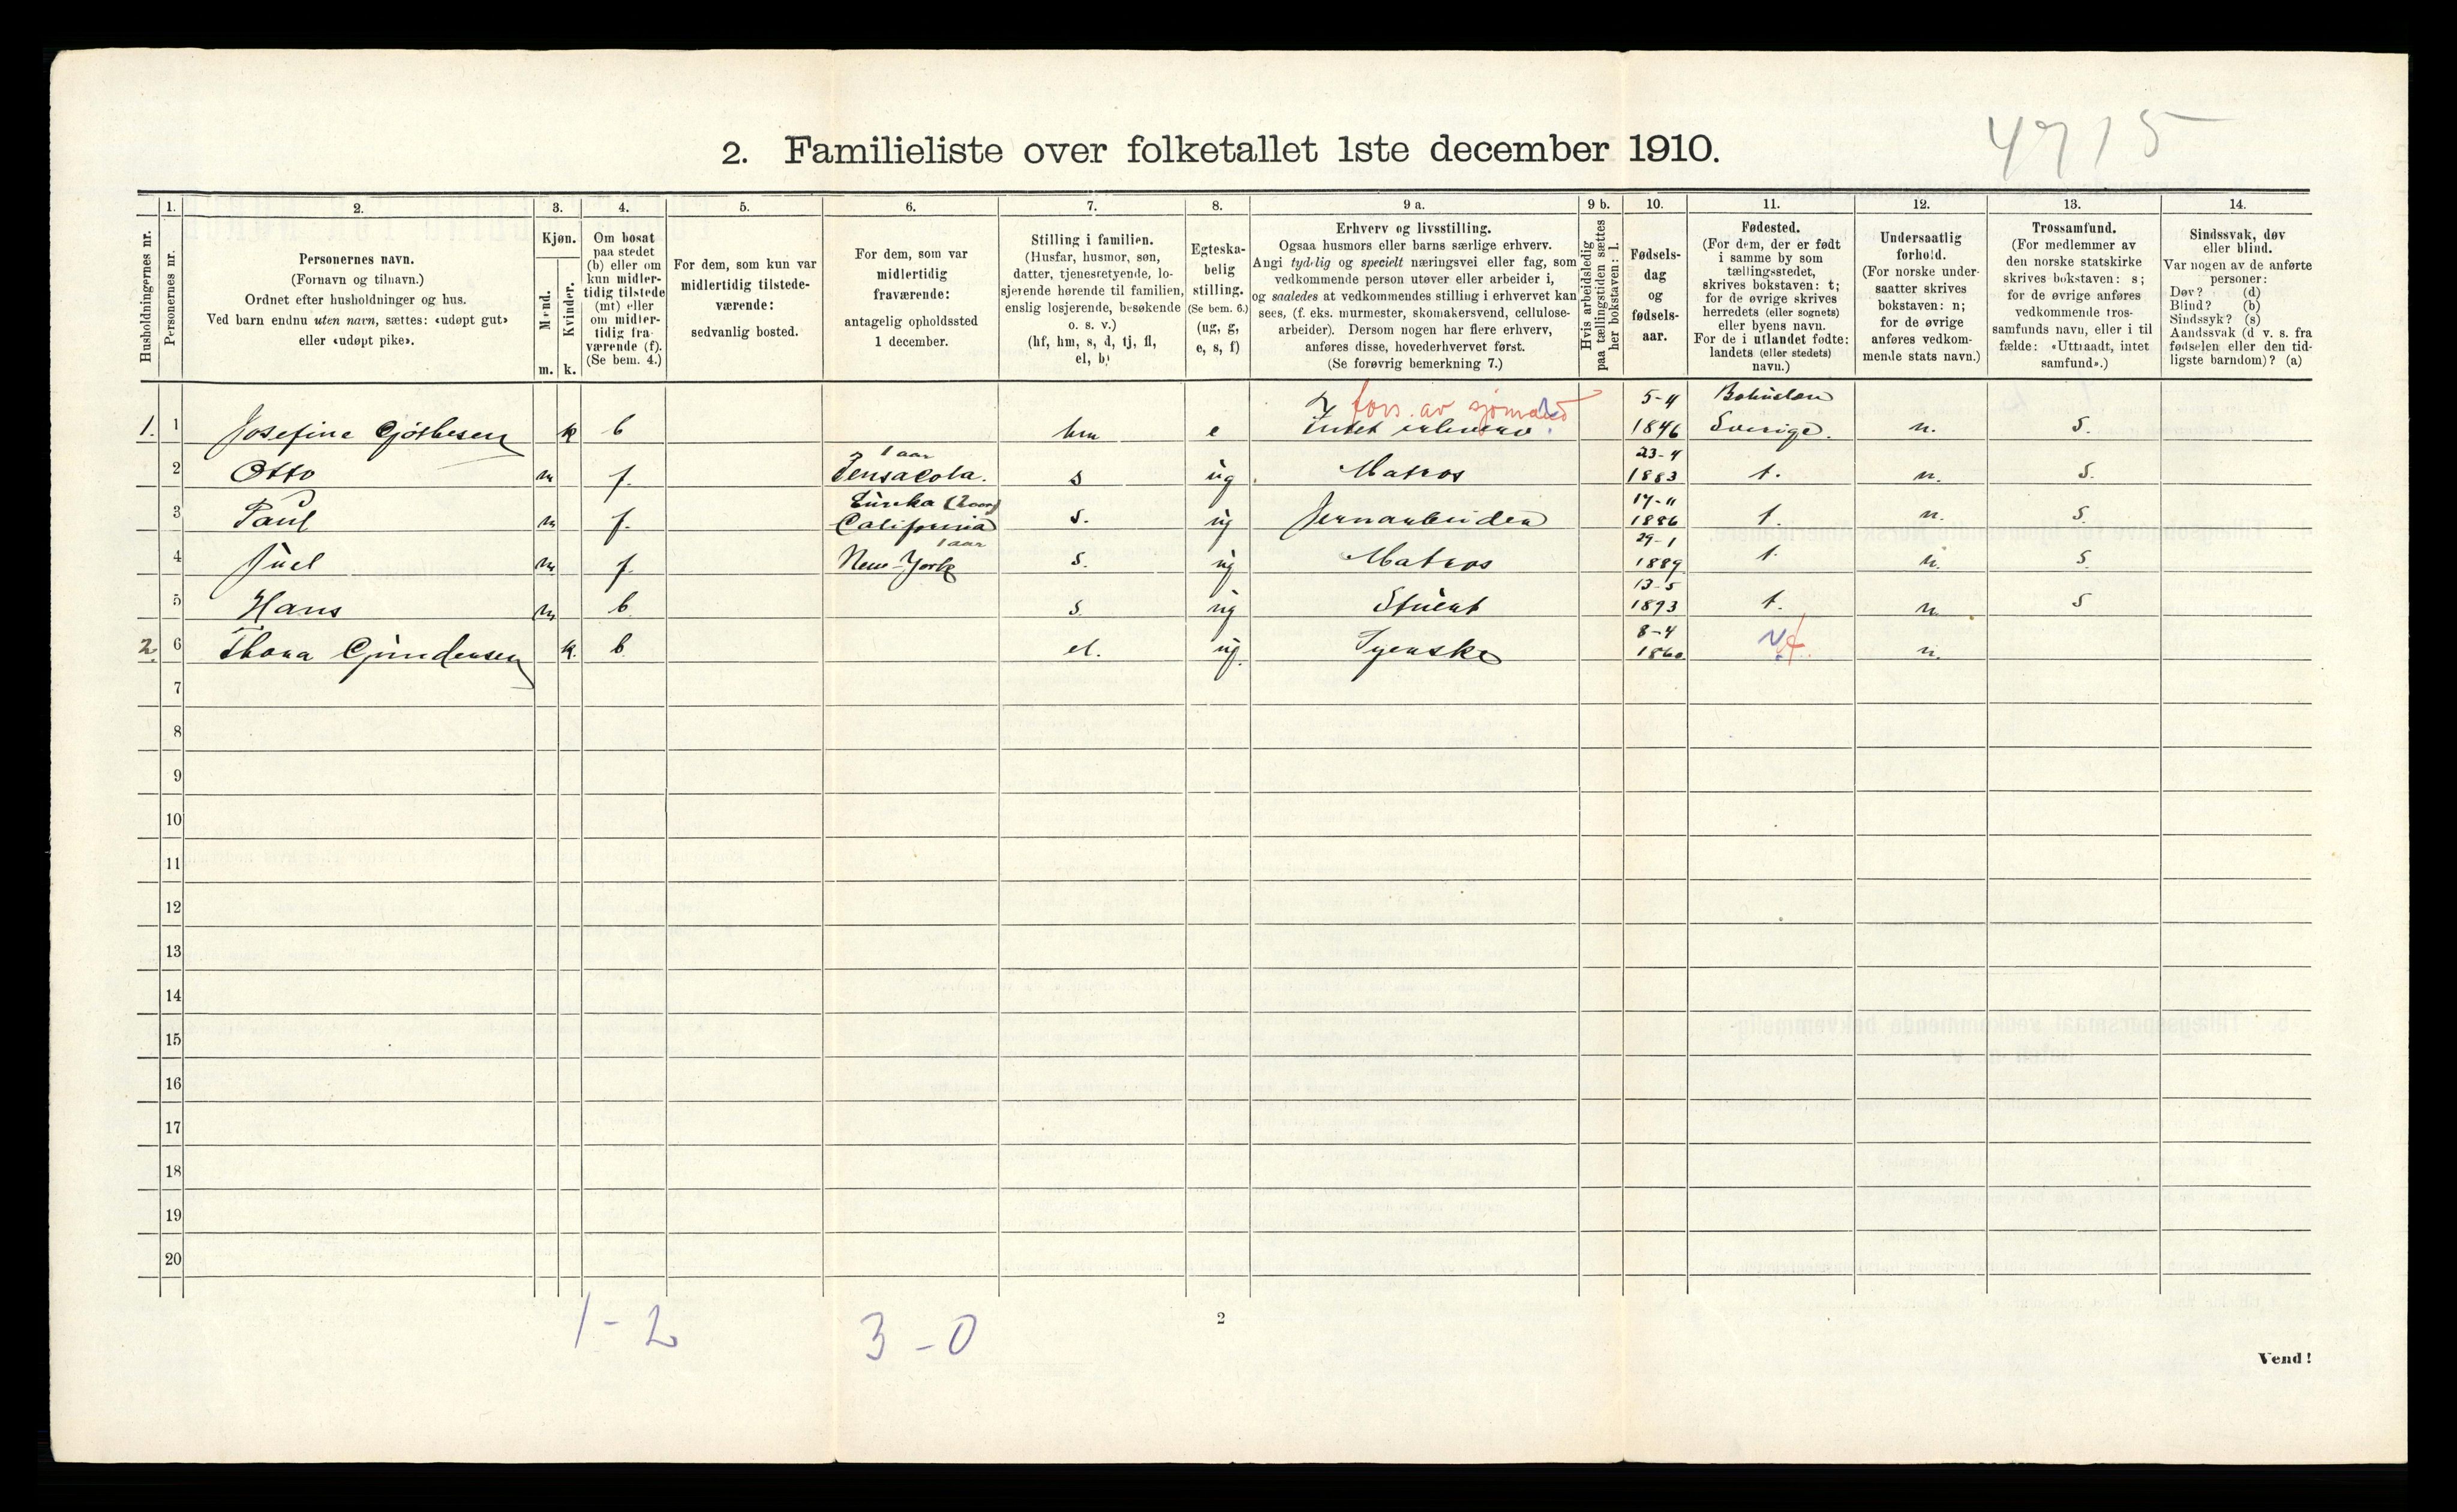 4715
2. Familieliste over folketallet 1ste december 1910.
Husholdningernes nr.
1.
Personernes nr.
2.
Personernes navn.
(Fornavn og tilnavn.)
Ordnet efter husholdninger og hus.
Ved barn endnu uten navn, sættes: «udøpt gut»
eller «udøpt pike».
3.
Kjøn.
Mænd.
Kvinder.
m. k.
4.
Om bosat
paa stedet
(b) eller om
kun midler-
tidig tilstede
(mt) eller
om midler-
tidig fra-
værende (f).
(Se bem. 4.)
5.
For dem, som kun var
midlertidig tilstede-
værende:
sedvanlig bosted.
6.
For dem, som var
midlertidig
fraværende:
antagelig opholdssted
1 december.
7.
Stilling i familien.
(Husfar, husmor, søn,
datter, tjenestetyende, lo-
sjerende hørende til familien,
enslig losjerende, besøkende
o. s. v.)
(hf, hm, s, d, tj, fl,
el, b)
8.
Egteska-
belig
stilling.
(Se bem. 6.)
(ug, g,
e, s, f)
9 a.
Erhverv og livsstilling.
Ogsaa husmors eller barns særlige erhverv.
Angi tydelig og specielt næringsvei eller fag, som
vedkommende person utøver eller arbeider i,
og saaledes at vedkommendes stilling i erhvervet kan
sees, (f. eks. murmester, skomakersvend, cellulose-
arbeider). Dersom nogen har flere erhverv,
anføres disse, hovederhvervet først.
(Se forøvrig bemerkning 7.)
9 b.
Hvis arbeidsledig
paa tællingstiden sættes
her bokstaven: l.
10.
Fødsels-
dag
og
fødsels-
aar.
11.
Fødested.
(For dem, der er født
i samme by som
tællingsstedet,
skrives bokstaven: t;
for de øvrige skrives
herredets (eller sognets)
eller byens navn.
For de i utlandet fødte:
landets (eller stedets)
navn.)
12.
Undersaatlig
forhold.
(For norske under-
saatter skrives
bokstaven: n;
for de øvrige
anføres vedkom-
mende stats navn.)
13.
Trossamfund.
(For medlemmer av
den norske statskirke
skrives bokstaven: s;
for de øvrige anføres
vedkommende tros-
samfunds navn, eller i til-
fælde: «Uttraadt, intet
samfund».)
14.
Sindssvak, døv
eller blind.
Var nogen av de anførte
personer:
Døv? (d)
Blind? (b)
Sindssyk? (s)
Aandssvak (d. v. s. fra
fødselen eller den tid-
ligste barndom)? (a)
fors. av sjømænd 5-4 Bohuslen
1. 1 Josefine Gjøthesen k b hm e Intet erhverv. 1846 Sverige. n. S.
1 aar 23-4
2 Otto m f. Pensacola. s ug Matros 1883 t. n. S.
Eureka (2 aar) 17-11
3 Paul m f. California s. ug Jernarbeider 1886 t. n. S.
1 aar 29-1
4 Juel m f. New-York s. ug Matros 1889 t. n. S.
13-5
5 Hans m b s. ug Stuert 1893 t. n. S
8-4
2. 6 Thora Gundersen k. b. el. ug. Syerske 1860 t. n.
7
8
9
10
11
12
13
14
15
16
17
18
19
20
1-2 3-0
2
Vend!